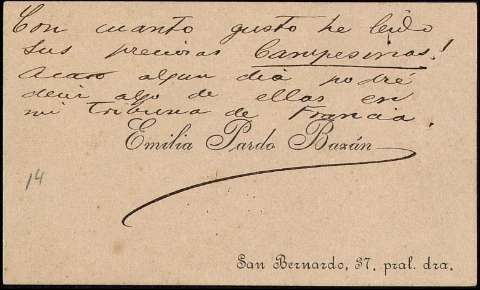 Con cuanto gusto he leido
sus preciosas Campesinas!
Acaso algun dia podré
decir algo de ellas en
mi tribuna de Francia.
Emilia Pardo Bazán
14
San Bernardo, 37, pral. dra.